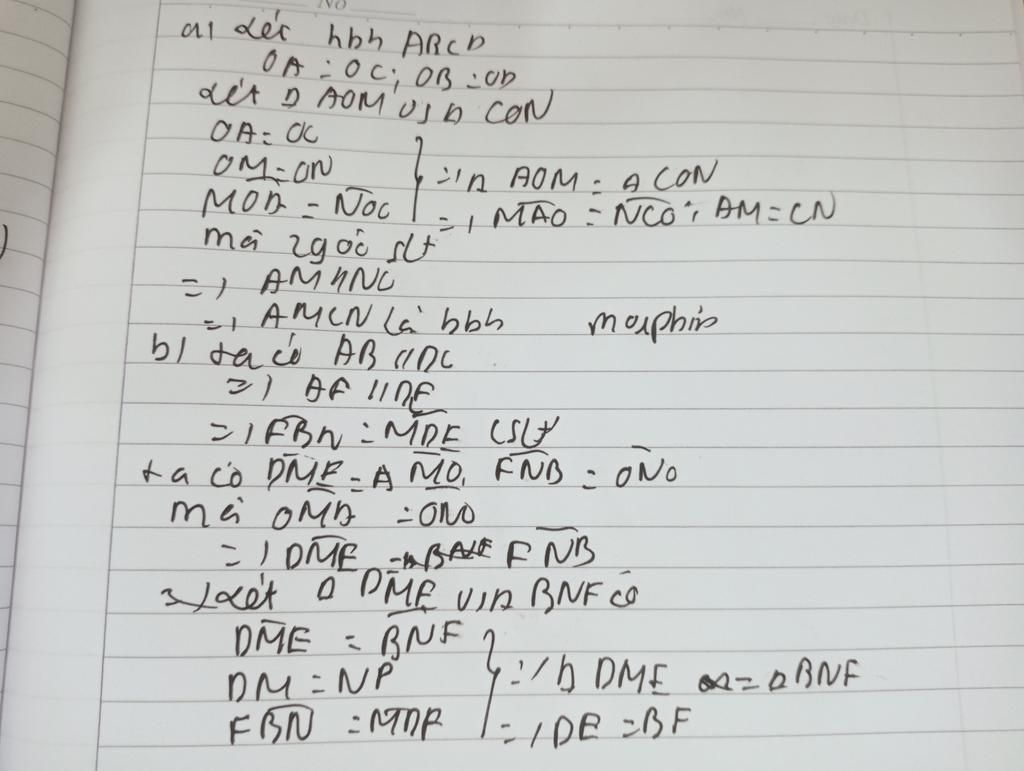 No
a) Xét hbh ABCD
OA = OC; OB = OD
Xét Δ AOM và Δ CON
OA = OC
OM = ON } => Δ AOM = Δ CON
MOA = NOC => MAO = NCO; AM = CN
mà 2 góc slt
=> AM // NC
=> AMCN là hbh
b) ta có AB // DC
=> AF // DE
=> FBN = MDE (slt)
ta có DME = AMO, FNB = ONO
mà OMA = ONO
=> DME = FNB
=> Xét Δ DME và Δ BNF có
DME = BNF
DM = NP } => Δ DME = Δ BNF
FBN = MDE => DE = BF